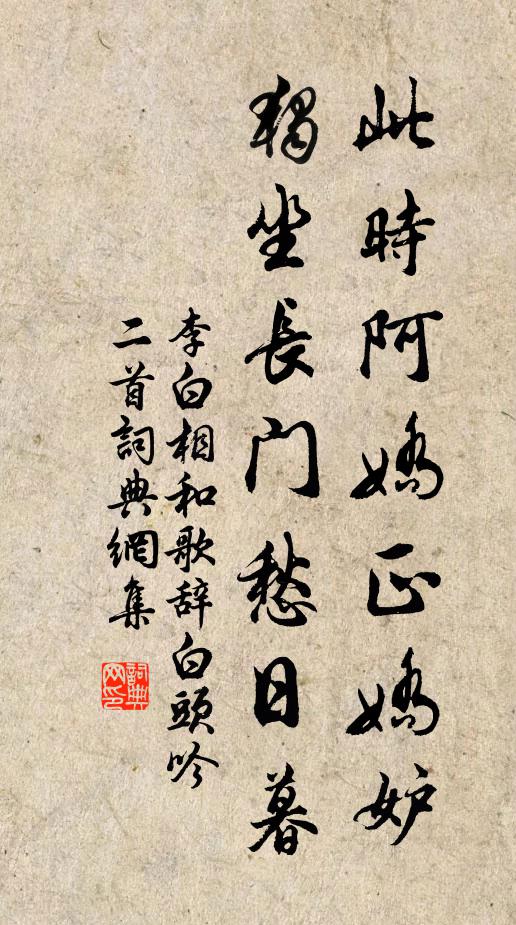 此時阿嬌正嬌妒
獨坐長門愁日暮
李白相和歌辞白頭吟
二首詞典網集
詞典網印